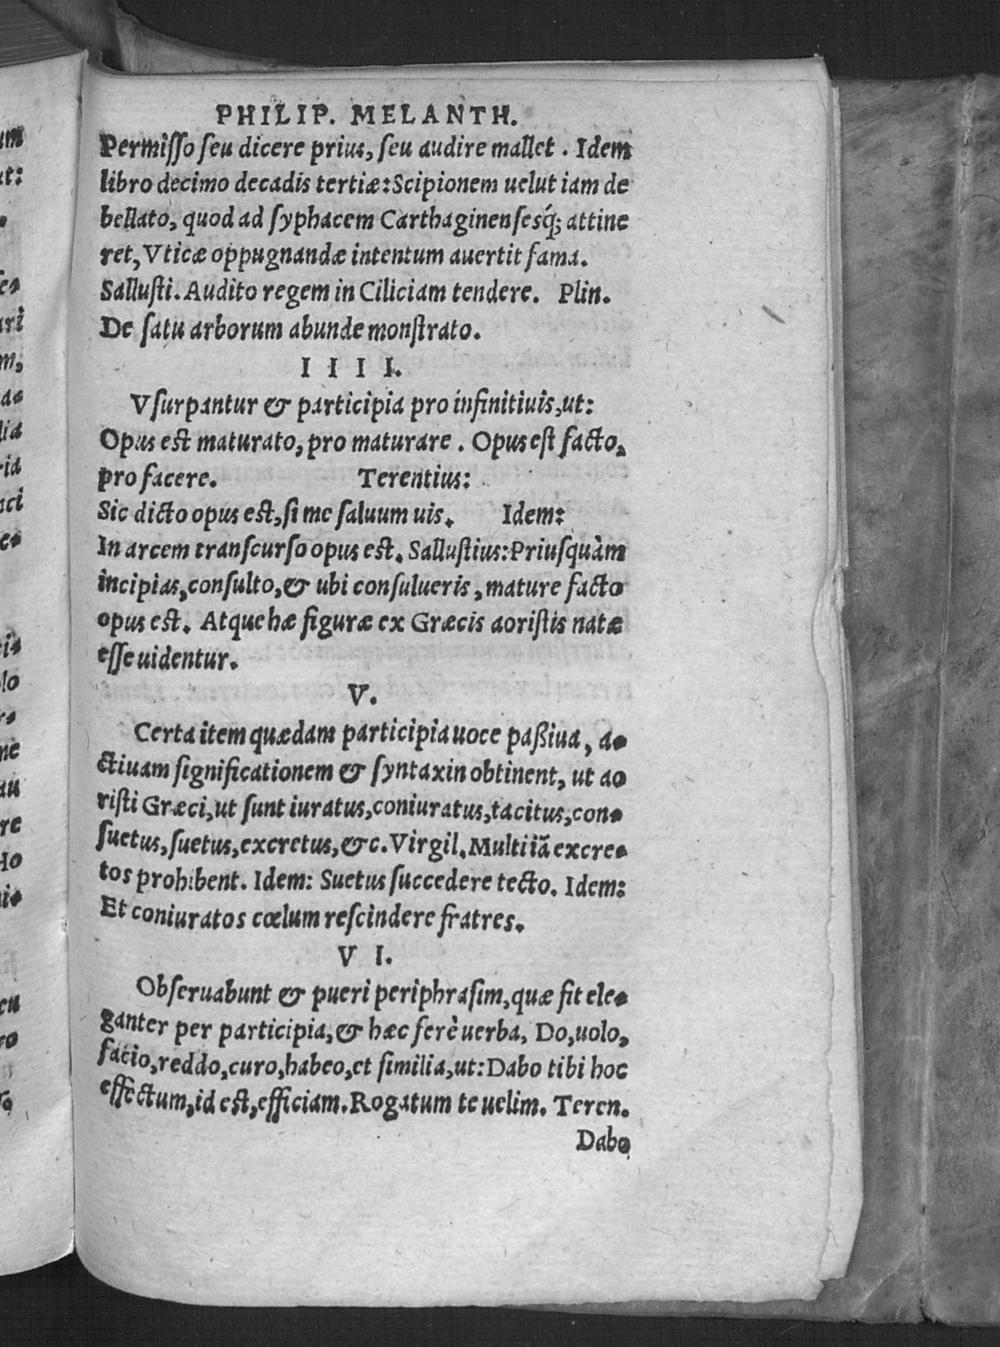 PHILIP. MELANTH.
Permisso seu dicere prius, seu audire mallet. Idem
libro decimo decadis tertiæ: Scipionem uelut iam de
bellato, quod ad syphacem Carthaginensesq́; attine
ret, Vticæ oppugnandæ intentum auertit fama.
Sallusti. Audito regem in Ciliciam tendere. Plin.
De satu arborum abunde monstrato.
IIII.
Vsurpantur & participia pro infinitiuis, ut:
Opus est maturato, pro maturare. Opus est facto,
pro facere. Terentius:
Sic dicto opus est, si me saluum uis. Idem:
In arcem transcurso opus est. Sallustius: Priusquàm
incipias, consulto, & ubi consulueris, mature facto
opus est. Atque hæ figuræ ex Græcis aoristis natæ
esse uidentur.
V.
Certa item quædam participia uoce paßiua, a-
ctiuam significationem & syntaxin obtinent, ut ao
risti Græci, ut sunt iuratus, coniuratus, tacitus, con-
suetus, suetus, excretus, &c. Virgil. Multi iã excre-
tos prohibent. Idem: Suetus succedere tecto. Idem:
Et coniuratos cœlum rescindere fratres.
VI.
Obseruabunt & pueri periphrasim, quæ fit ele-
ganter per participia, & hæc ferè uerba, Do, uolo,
facio, reddo, curo, habeo, et similia, ut: Dabo tibi hoc
effectum, id est, efficiam. Rogatum te uelim. Teren.
Dabo